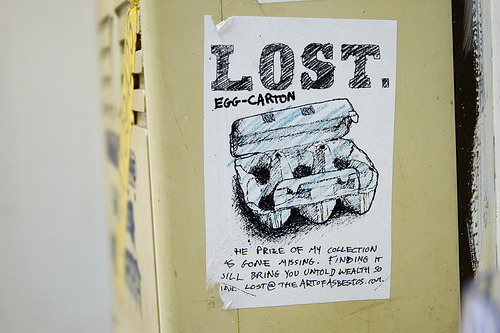 LOST.
EGG-CARTON
HE PRIZE OF MY COLLECTION
AS GONE MISSING. FINDING IT
ILL BRING YOU UNTOLD WEALTH SO
LOST@THEARTOFASBESTOS.COM.